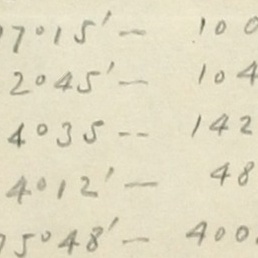 17°15'— 100
2°45'— 104
4°35-- 142
4°12'— 48
75°48'— 400.